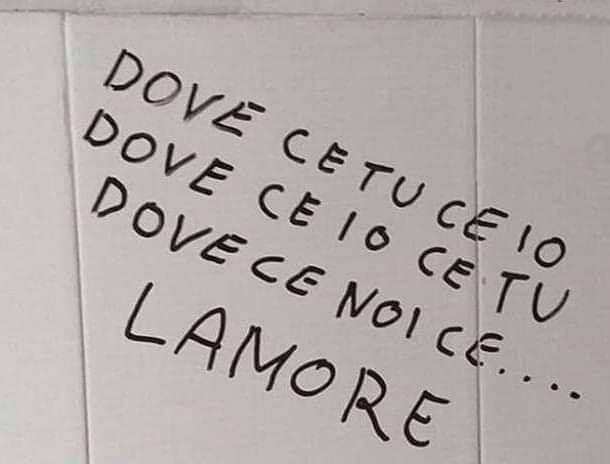 DOVE CE TU CE IO
DOVE CE IO CE TU
DOVE CE NOI CE....
LAMORE